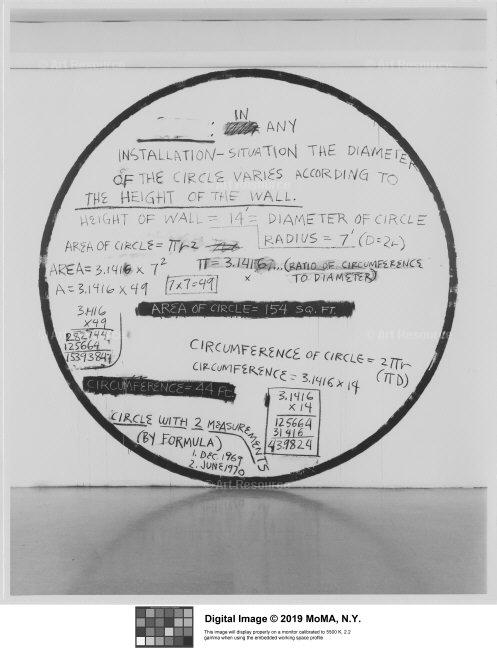 © Art Resource
© Art Resource
IN
: ANY
INSTALLATION-SITUATION THE DIAMETER
OF THE CIRCLE VARIES ACCORDING TO
THE HEIGHT OF THE WALL.
HEIGHT OF WALL = 14' = DIAMETER OF CIRCLE
RADIUS = 7' (D=2r)
AREA OF CIRCLE = πr2
AREA = 3.1416 x 7²
π = 3.1416... (RATIO OF CIRCUMFERENCE
TO DIAMETER)
A = 3.1416 x 49
7x7=49
x
AREA OF CIRCLE = 154 SQ. FT.
3.1416
x49
282744
125664
1539384
© Art Resource
CIRCUMFERENCE OF CIRCLE = 2πr
(πD)
CIRCUMFERENCE = 3.1416 x 14
CIRCUMFERENCE = 44 FT.
3.1416
x 14
125664
31416
439824
CIRCLE WITH 2 MEASUREMENTS
(BY FORMULA)
1. DEC. 1969
2. JUNE 1970
© Art Resource
Digital Image © 2019 MoMA, N.Y.
This image will display properly on a monitor calibrated to 5500 K, 2.2
gamma when using the embedded working space profile